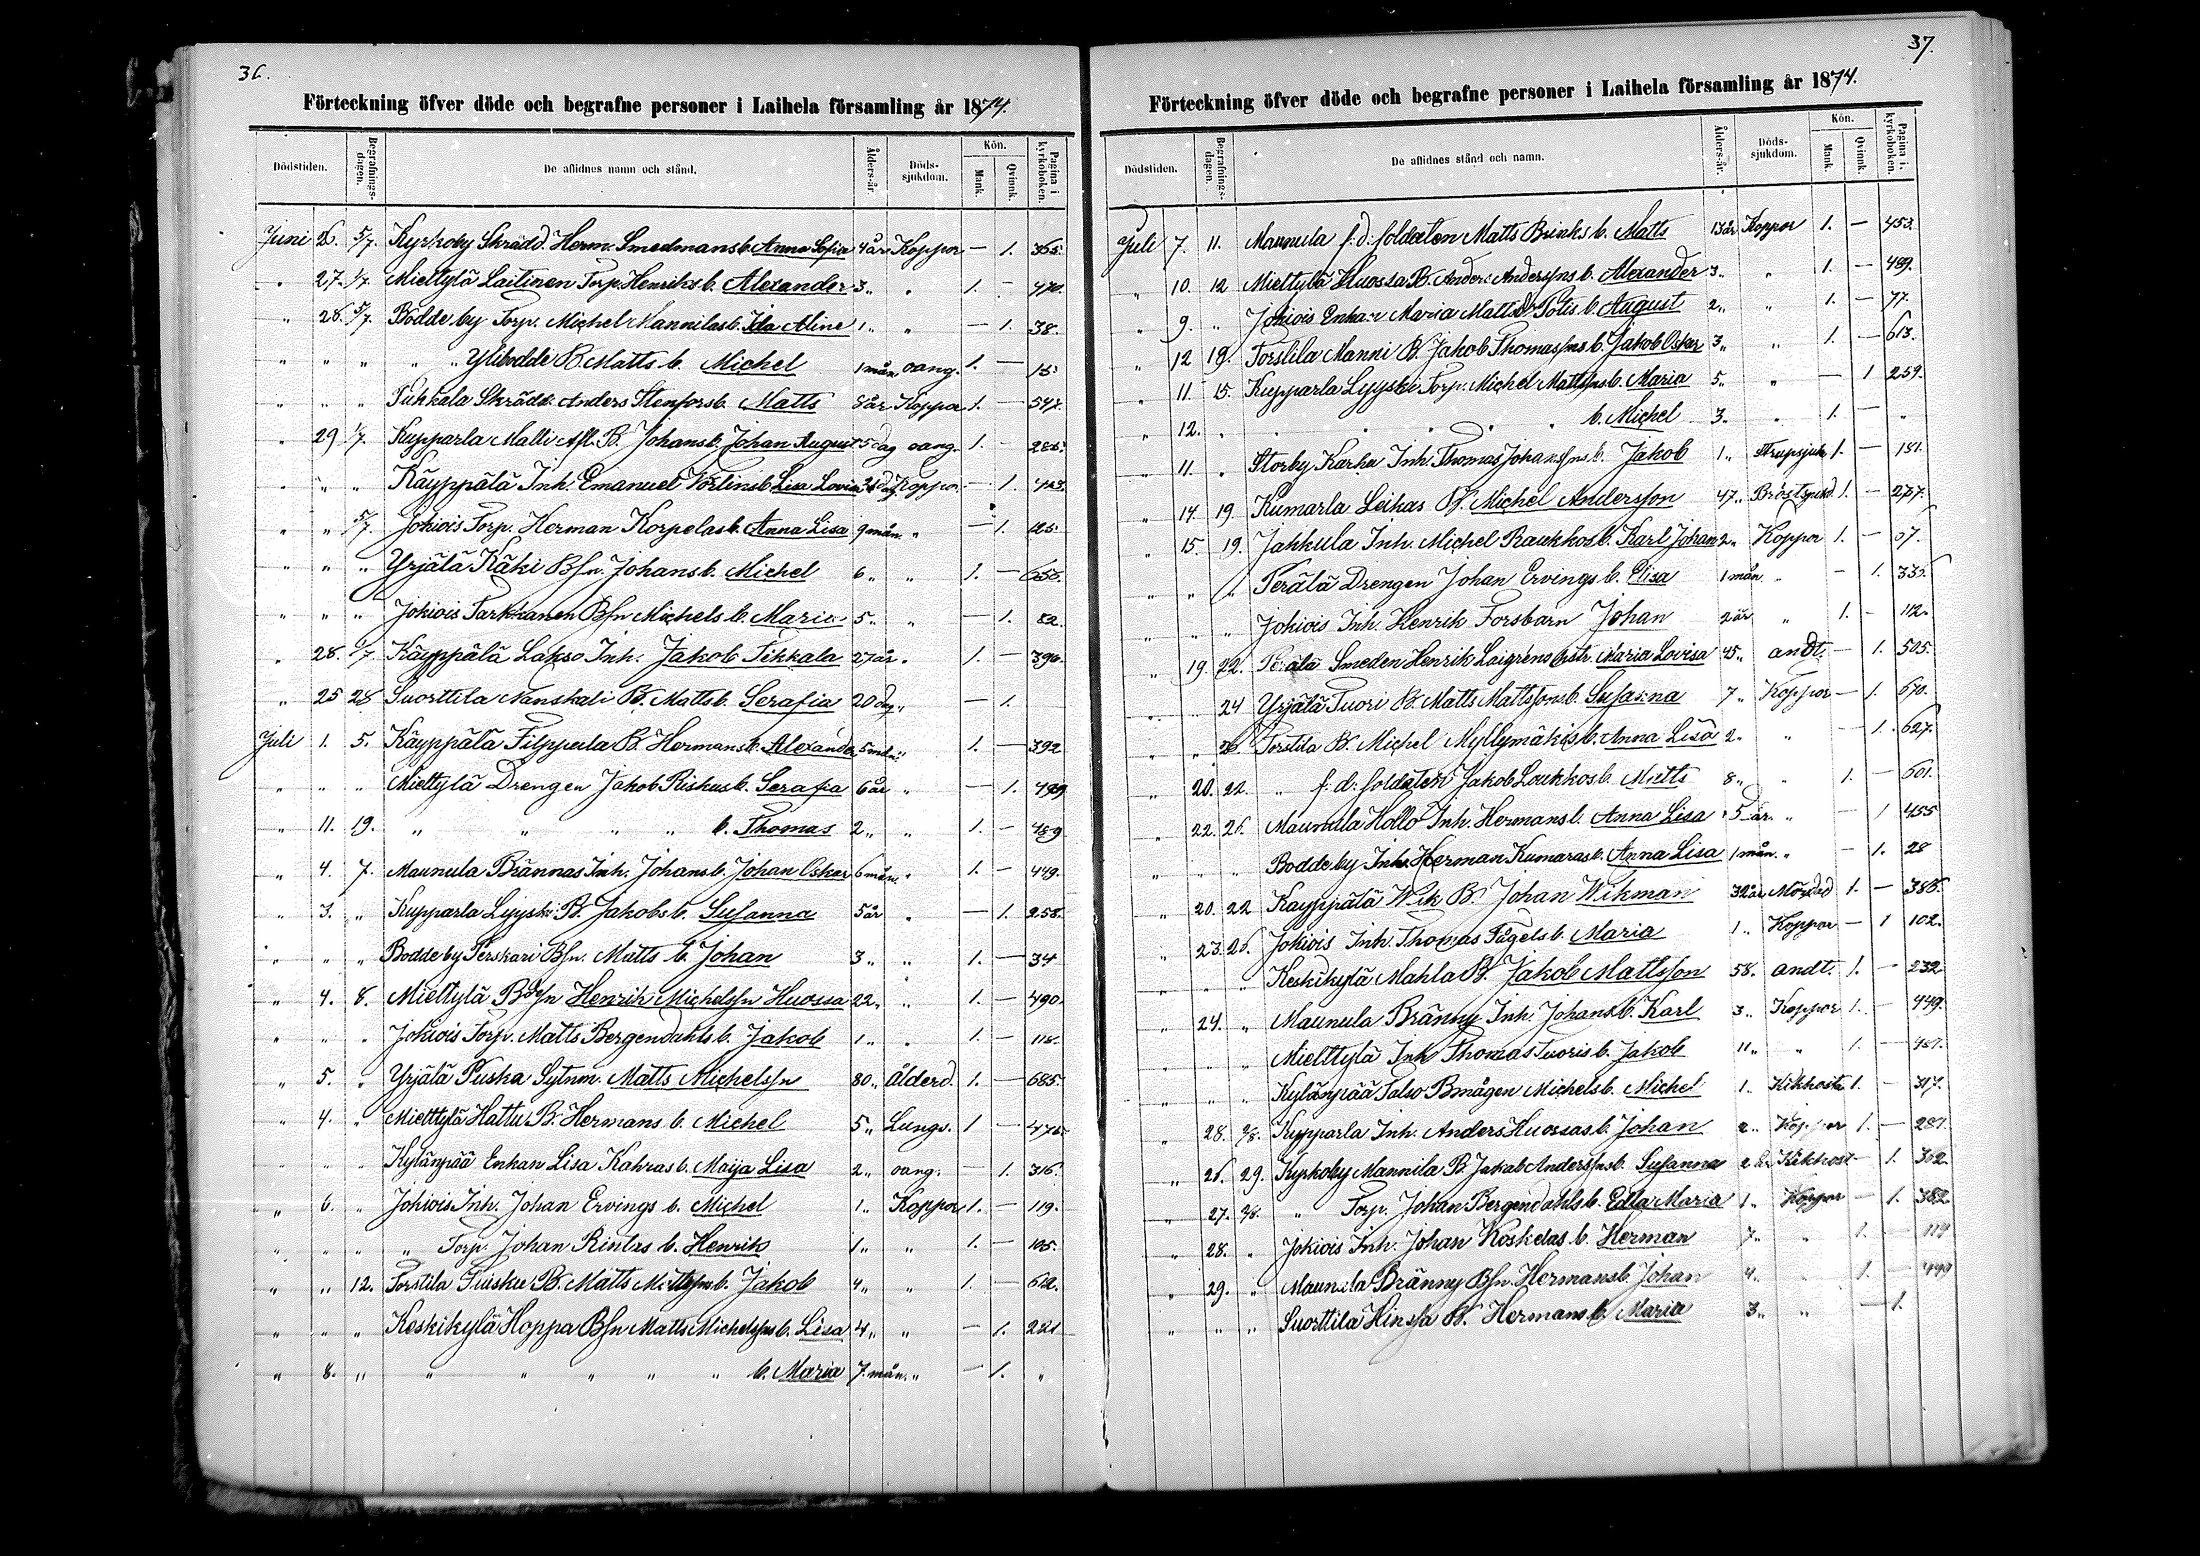 36.
Förteckning öfver döde och begrafne personer i Laihela församling år 1874.
Dödstiden. Begrafnings-dagen. De aflidnes namn och stånd. Ålders-år. Döds-sjukdom. Kön. Mank. Qvinnk. Pagina i kyrkoboken.
Juni 26. 5/7. Kyrkoby Skrädd. Herm. Smedmans b. Anna Sofia 4 år Koppor — 1. 365.
" 27. 1/7. Mieltylä Laitinen Torp. Henriks b. Alexander 3 " " 1. — 470.
" 28. 5/7. Bodde by Torp. Michel Mannilas b. Ida Aline 1 " " — 1. 38.
" " " " " Ylibodde B. Matts b. Michel 1 mån oang. 1. — 15.
" " " Jukkala Skrädd. Anders Stenfors b. Matts 8 år Koppor 1. — 547.
" 29 1/7. Kupparla Malli Afl. B. Johans b. Johan August 5 dag oang. 1. — 285.
" " " Käyppälä Inh. Emanuel Vörlins b. Lisa Lovisa dag Koppor — 1. 423.
" " 5/7. Jokiois Torp. Herman Korpelas b. Anna Lisa 9 mån. " — 1. 125.
" " " Yrjälä Käki Bsn. Johans b. Michel 6 " " 1. —
" " " Jokiois Tarkkanen Bsn Michels b. Maria 5 " " — 1. 82.
" 28. /7 Käyppälä Lakso Inh. Jakob Tikkala 27 år " 1. — 396.
" 25 28 Suorttila Nanskali B. Matts b. Serafia 20 dag " — 1.
Juli 1. 5. Käyppälä Filppula B. Hermans b. Alexander 5 mån " 1. — 392
" " " Mieltylä Drengen Jakob Riskus b. Serafia 6 år " — 1. 499
" 11. 19. " " " " b. Thomas 2 " " 1. — 489
" 4. 7. Maunula Brännas Inh. Johans b. Johan Oskar 6 mån. " 1. — 449.
" 3. " Kupparla Lyyski B. Jakobs b. Susanna 5 år " — 1. 258.
" " " Bodde by Perskari Bsn. Matts b. Johan 3 " " 1. — 34
" 4. 8. Mieltylä Bdesn Henrik Michelssn Huossa 22 " " 1. — 490.
" " " Jokiois Torp. Matts Bergendahls b. Jakob 1 " " 1. — 115.
" 5. " Yrjälä Puska Sytnm. Matts Michelssn 80 " ålderd. 1. — 685.
" 4. " Mielttylä Hattu B. Hermans b. Michel 5 " Lungs. 1 — 476
" " " Kylänpää Enkan Lisa Kahras b. Maija Lisa 2 " oang. — 1. 316.
" 6. " Jokiois Inh. Johan Ervings b. Michel 1 " Koppor 1. — 119.
" " " " Torp. Johan Rintas b. Henrik 1 " " 1. — 105.
" " 12. Torstila Tuiskee B. Matts Mattssns b. Jakob 4 " " 1. — 612.
" " " Keskikylä Hoppa Bsn Matts Michelssns b. Lisa 4 " " — 1. 221
" 8. " " " " " " b. Maria 7. mån. " — 1. "
37.
Förteckning öfver döde och begrafne personer i Laihela församling år 1874.
Dödstiden. Begrafnings-dagen. De aflidnes stånd och namn. Ålders-år. Döds-sjukdom. Kön. Mank. Qvinnk. Pagina i kyrkoboken.
Juli 7. 11. Maunula f. d. soldaten Matts Brinks b. Matts 13 år Koppor 1. — 453.
" 10. 12 Mieltylä Huossa B. Anders Anderssns b. Alexander 3 " " 1. — 489.
" 9. " Jokiois Enkan Maria Mattsdr Potis b. August 2 " " 1. — 77.
" 12 19. Torstila Manni B. Jakob Thomassns b. Jakob Oskar 3 " " 1. — 613.
" 11. 15. Kupparla Lyyski Torp. Michel Mattssns b. Maria 5 " " — 1 259.
" 12. " " " " " b. Michel 3 " " 1. — "
" 11. " Storby Karha Inh. Thomas Johanssns b. Jakob 1 " Strupsjuk 1. — 181.
" 14. 19. Kumarla Leikas B. Michel Andersson 47 " Bröstsjukd. 1. — 267.
" 15. 19. Jakkula Inh. Michel Raukkos b. Karl Johan 2 " Koppor 1. — 57.
" " " Perälä Drengen Johan Ervings b. Elisa 1 mån " — 1. 335.
" " " Jokiois Inh. Henrik Forsbarn Johan 2 år " 1. — 112.
" 19. 22. Perälä Smeden Henrik Laigréns hstr. Maria Lovisa 45 " andt. — 1. 505.
" " 24 Yrjälä Tuori B. Matts Mattssons b. Susanna 7 " Koppor — 1. 670.
" " 26. Torstila B. Michel Myllymäkis b. Anna Lisa 2 " " — 1. 627.
" 20. 22. " f. d. soldaten Jakob Loukkos b. Matts 8 " " 1. — 601.
" 22. 26. Maunula Hollo Inh. Hermans b. Anna Lisa 5 år. " — 1 455
" " " Bodde by Inh. Herman Kumaras b. Anna Lisa 1 mån. " — 1. 28
" 20. 22 Käyppälä Wik B. Johan Wikman 32 år Mördad 1. — 386.
" 23. 26. Jokiois Inh. Thomas Fågels b. Maria 1 " Koppor — 1 102.
" " " Keskikylä Mahla B. Jakob Mattsson 58. andt. 1. — 232
" 24. " Maunula Bränny Inh. Johans b. Karl 3 " Koppor 1. — 449.
" " " Mielttylä Inh Thomas Tuoris b. Jakob 11 " " 1. — 487.
" " " Kylänpää Talso Bmågen Michels b. Michel 1 " Kikhosta 1. — 317.
" 28. 2/8. Kupparla Inh. Anders Huossas b. Johan 2 " Koppor 1. — 281.
" 26. 29. Kyrkoby Mannila B. Jakob Anderssns b. Susanna 2 år Kikhost — 1. 362
" 27. 2/8. " Torp. Johan Bergendahls b. Edla Maria 1 " Koppor — 1. 382
" 28. " Jokiois Inh. Johan Koskelas b. Herman 7 " " 1. — 119
" 29. " Maunula Bränny Bsn. Hermans b. Johan 4 " " 1. — 449
" " " Suorttila Hinssa B. Hermans b. Maria 3 " " — 1.